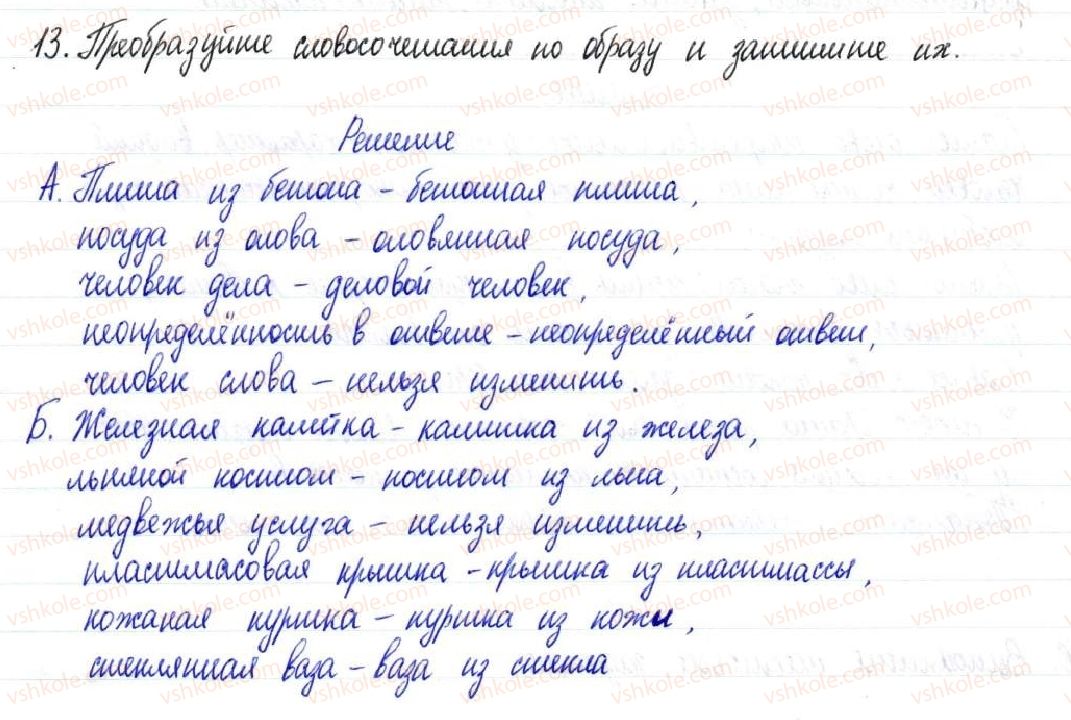 13. Преобразуйте словосочетания по образу и запишите их.
Решение
А. Плита из бетона - бетонная плита,
посуда из олова - оловянная посуда,
человек дела - деловой человек,
неопределённость в ответе - неопределённый ответ,
человек слова - нельзя изменить.
Б. Железная калитка - калитка из железа,
льняной костюм - костюм из льна,
медвежья услуга - нельзя изменить,
пластмасовая крышка - крышка из пластмассы,
кожаная куртка - куртка из кожи,
стеклянная ваза - ваза из стекла